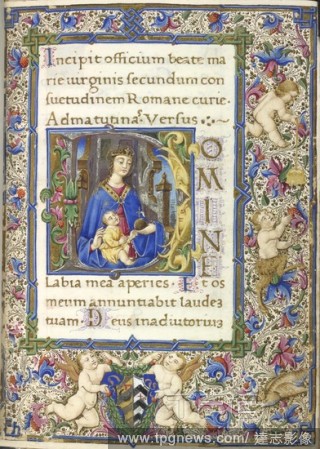 Incipit officium beate ma
rie uirginis secundum con
suetudinem Romane curie.
Ad matutinaʒ. Versus
DOMINE
Labia mea aperies. Et os
meum annuntiabit laudeʒ
tuam. Deus in adiutoriuʒ
www.tpgnews.com/ 達志影像